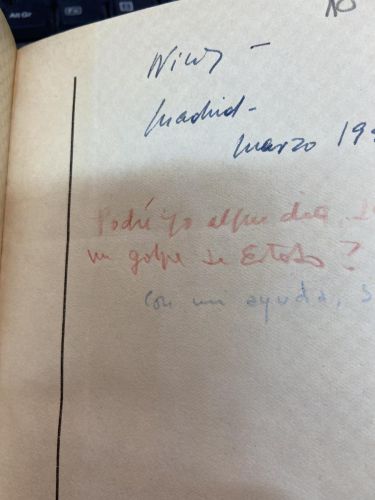 Madrid-
marzo 19
Podré yo algun dia
un golpe de Estado?
con mi ayuda, s